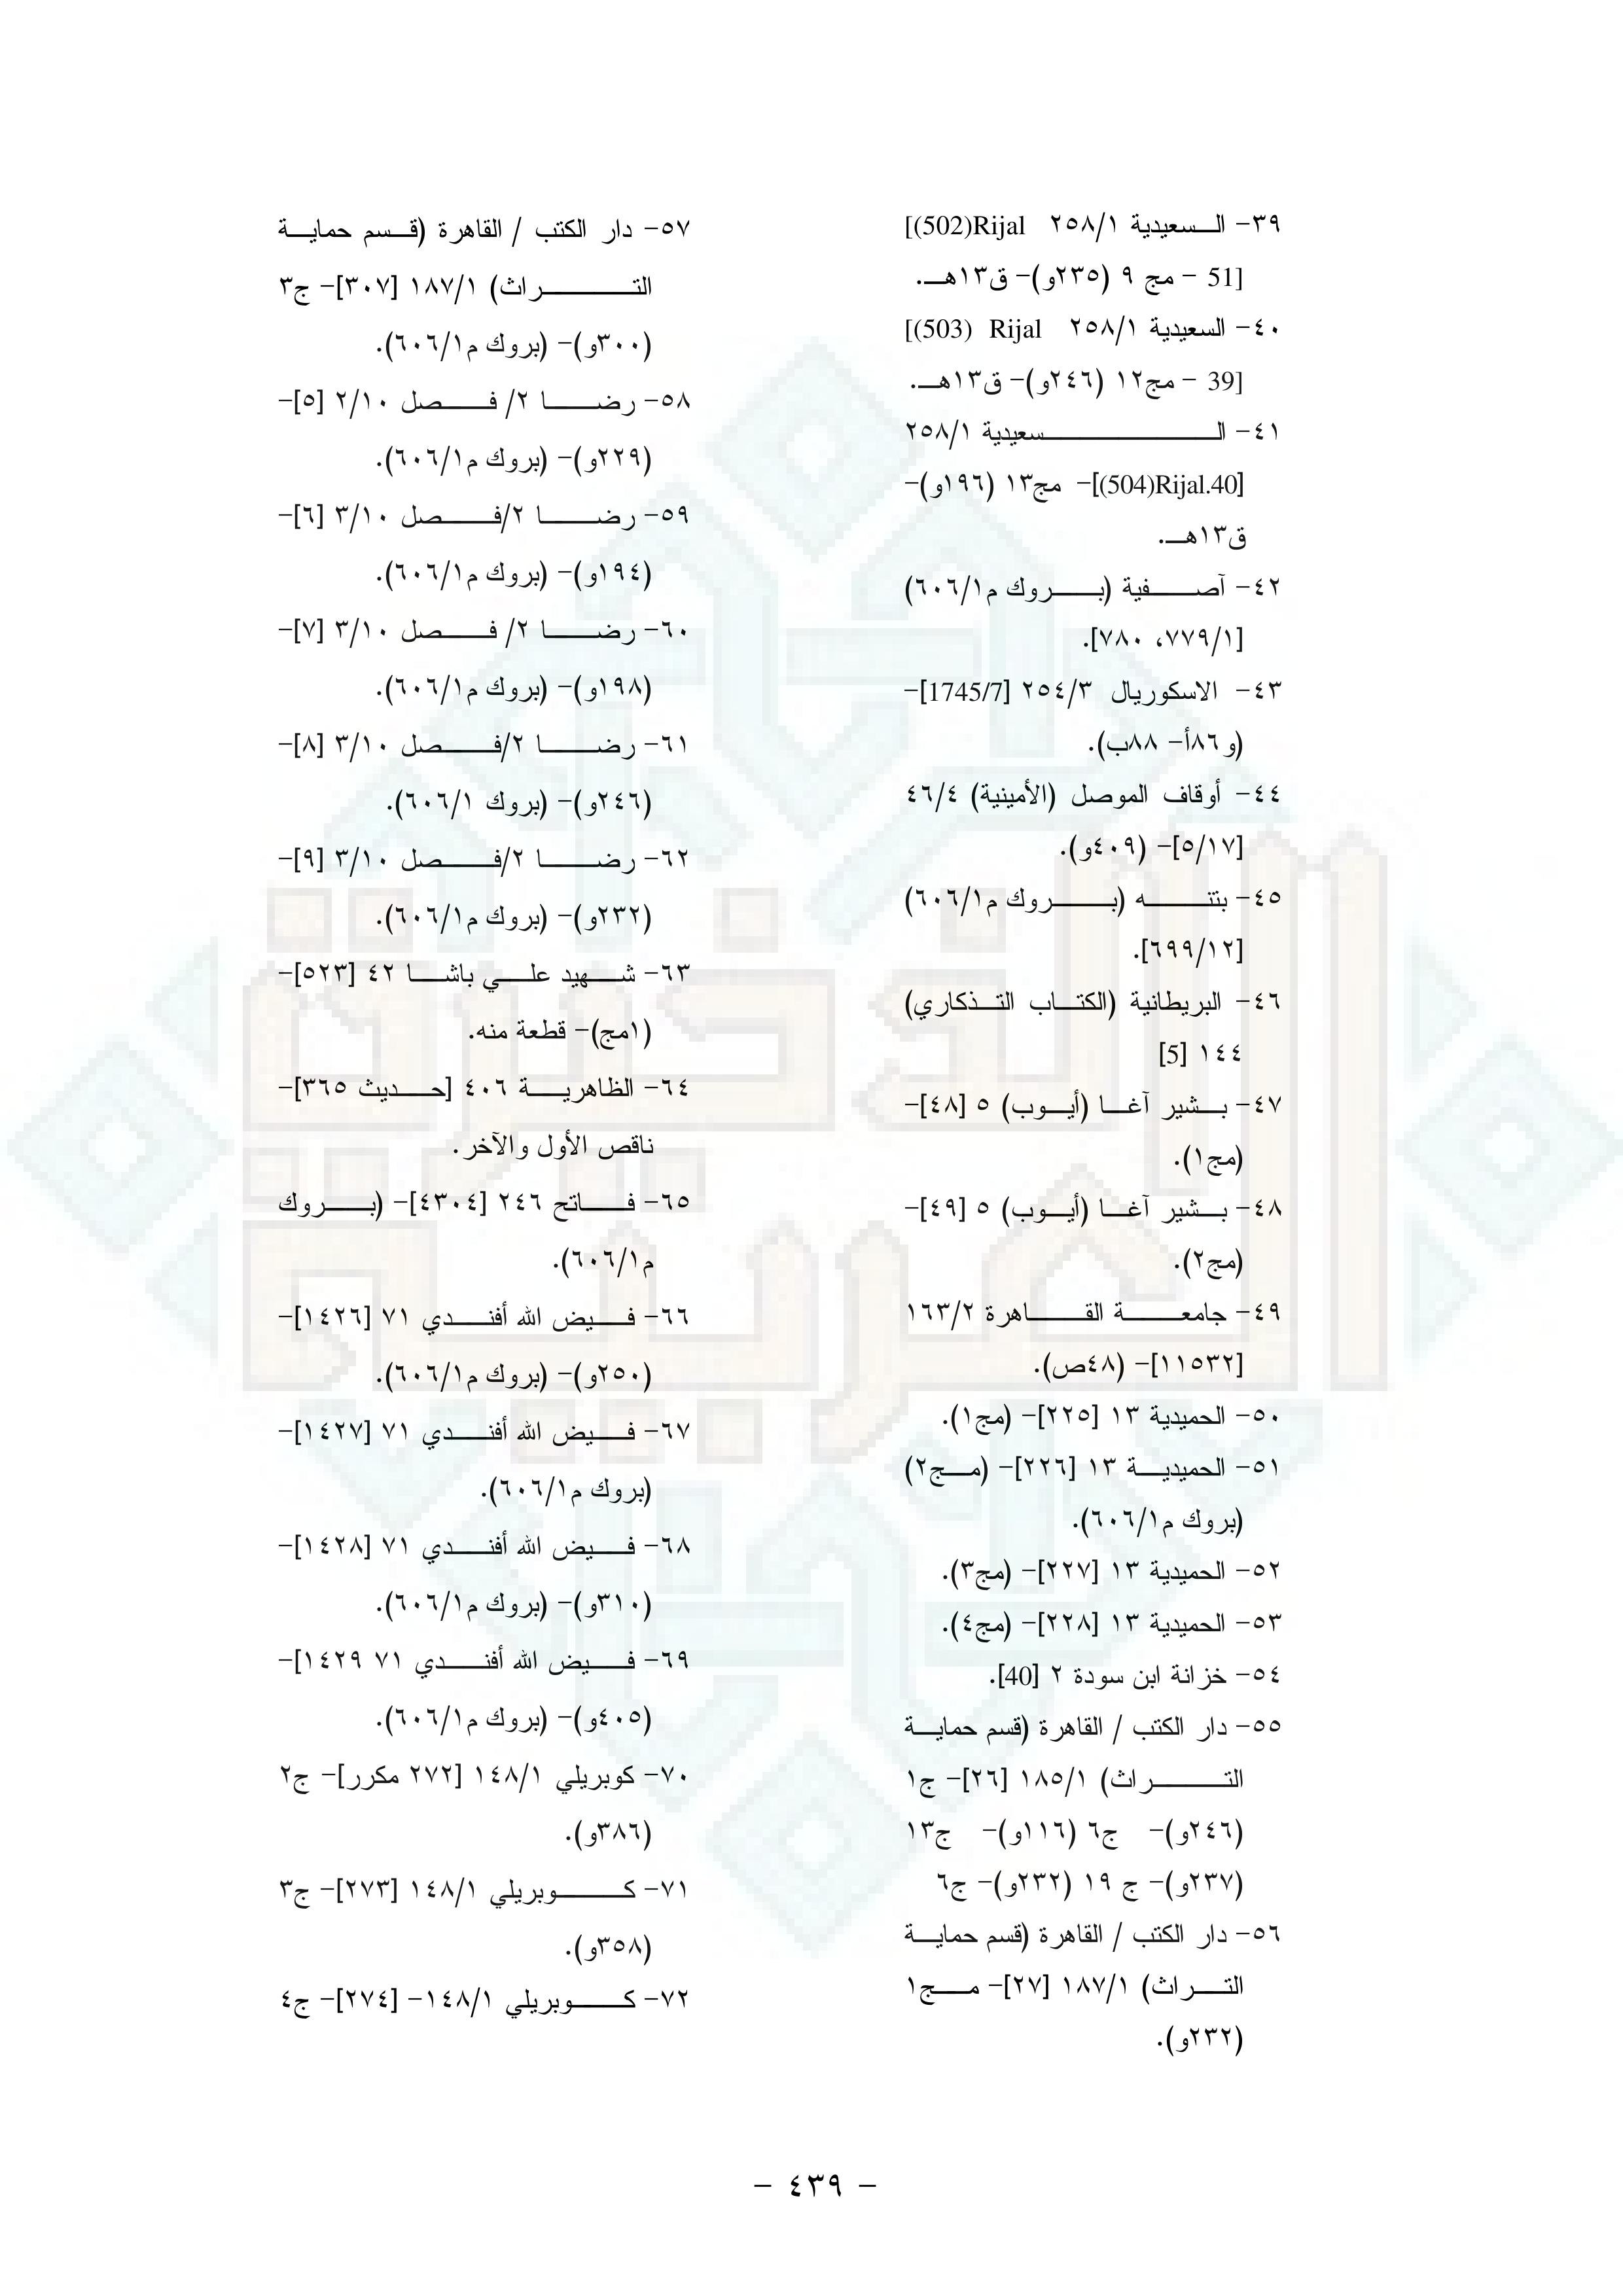 ٣٩- السعيدية ٢٥٨/١ Rijal(502)]
51] - مج ٩ (٢٣٥و)- ق١٣هـ.
٤٠- السعيدية ٢٥٨/١ Rijal (503)]
39] - مج١٢ (٢٤٦و)- ق١٣هـ.
٤١- السعيدية ٢٥٨/١
[504)Rijal.40)]- مج١٣ (١٩٦و)-
ق١٣هـ.
٤٢- آصفية (بروك م٦٠٦/١)
[٧٧٩/١، ٧٨٠].
٤٣- الاسكوريال ٢٥٤/٣ [1745/7]-
(و٨٦أ- ٨٨ب).
٤٤- أوقاف الموصل (الأمينية) ٤٦/٤
[٥/١٧]- (٤٠٩و).
٤٥- بتنه (بروك م٦٠٦/١)
[٦٩٩/١٢].
٤٦- البريطانية (الكتاب التذكاري)
١٤٤ [5]
٤٧- بشير آغا (أيوب) ٥ [٤٨]-
(مج١).
٤٨- بشير آغا (أيوب) ٥ [٤٩]-
(مج٢).
٤٩- جامعة القاهرة ١٦٣/٢
[١١٥٣٢]- (٤٨ص).
٥٠- الحميدية ١٣ [٢٢٥]- (مج١).
٥١- الحميدية ١٣ [٢٢٦]- (مج٢)
(بروك م٦٠٦/١).
٥٢- الحميدية ١٣ [٢٢٧]- (مج٣).
٥٣- الحميدية ١٣ [٢٢٨]- (مج٤).
٥٤- خزانة ابن سودة ٢ [40].
٥٥- دار الكتب / القاهرة (قسم حماية
التراث) ١٨٥/١ [٢٦]- ج١
(٢٤٦و)- ج٦ (١١٦و)- ج١٣
(٢٣٧و)- ج ١٩ (٢٣٢و)- ج٦
٥٦- دار الكتب / القاهرة (قسم حماية
التراث) ١٨٧/١ [٢٧]- مج١
(٢٣٢و).
٥٧- دار الكتب / القاهرة (قسم حماية
التراث) ١٨٧/١ [٣٠٧]- ج٣
(٣٠٠و)- (بروك م٦٠٦/١).
٥٨- رضا ٢/ فصل ٢/١٠ [٥]-
(٢٢٩و)- (بروك م٦٠٦/١).
٥٩- رضا ٢/فصل ٣/١٠ [٦]-
(١٩٤و)- (بروك م٦٠٦/١).
٦٠- رضا ٢/ فصل ٣/١٠ [٧]-
(١٩٨و)- (بروك م٦٠٦/١).
٦١- رضا ٢/فصل ٣/١٠ [٨]-
(٢٤٦و)- (بروك ٦٠٦/١).
٦٢- رضا ٢/فصل ٣/١٠ [٩]-
(٢٣٢و)- (بروك م٦٠٦/١).
٦٣- شهيد علي باشا ٤٢ [٥٢٣]-
(١مج)- قطعة منه.
٦٤- الظاهرية ٤٠٦ [حديث ٣٦٥]-
ناقص الأول والآخر.
٦٥- فاتح ٢٤٦ [٤٣٠٤]- (بروك
م٦٠٦/١).
٦٦- فيض الله أفندي ٧١ [١٤٢٦]-
(٢٥٠و)- (بروك م٦٠٦/١).
٦٧- فيض الله أفندي ٧١ [١٤٢٧]-
(بروك م٦٠٦/١).
٦٨- فيض الله أفندي ٧١ [١٤٢٨]-
(٣١٠و)- (بروك م٦٠٦/١).
٦٩- فيض الله أفندي ٧١ ١٤٢٩]-
(٤٠٥و)- (بروك م٦٠٦/١).
٧٠- كوبريلي ١٤٨/١ [٢٧٢ مكرر]- ج٢
(٣٨٦و).
٧١- كوبريلي ١٤٨/١ [٢٧٣]- ج٣
(٣٥٨و).
٧٢- كوبريلي ١٤٨/١- [٢٧٤]- ج٤
- ٤٣٩ -
الذخيرة
العربية